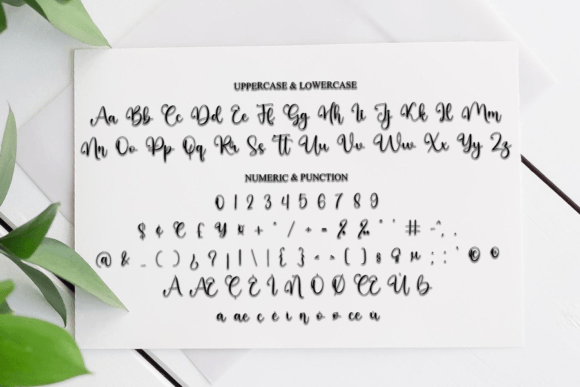 UPPERCASE & LOWERCASE
Aa Bb Cc Dd Ee Ff Gg Hh Ii Jj Kk Ll Mm
Nn Oo Pp Qq Rr Ss Tt Uu Vv Ww Xx Yy Zz
NUMERIC & PUNCTION
0 1 2 3 4 5 6 7 8 9
$ ¢ € £ ¥ ¤ + * / ÷ = % ‰ " ' # - ^ , .
@ & _ ( ) ¿ ? ¡ ! \ | { } « » [ ] § µ ; : ' © ®
A Æ Ç È Ì Ñ O Ø Œ Ù ß
a æ ç è ì ñ o ø œ ù